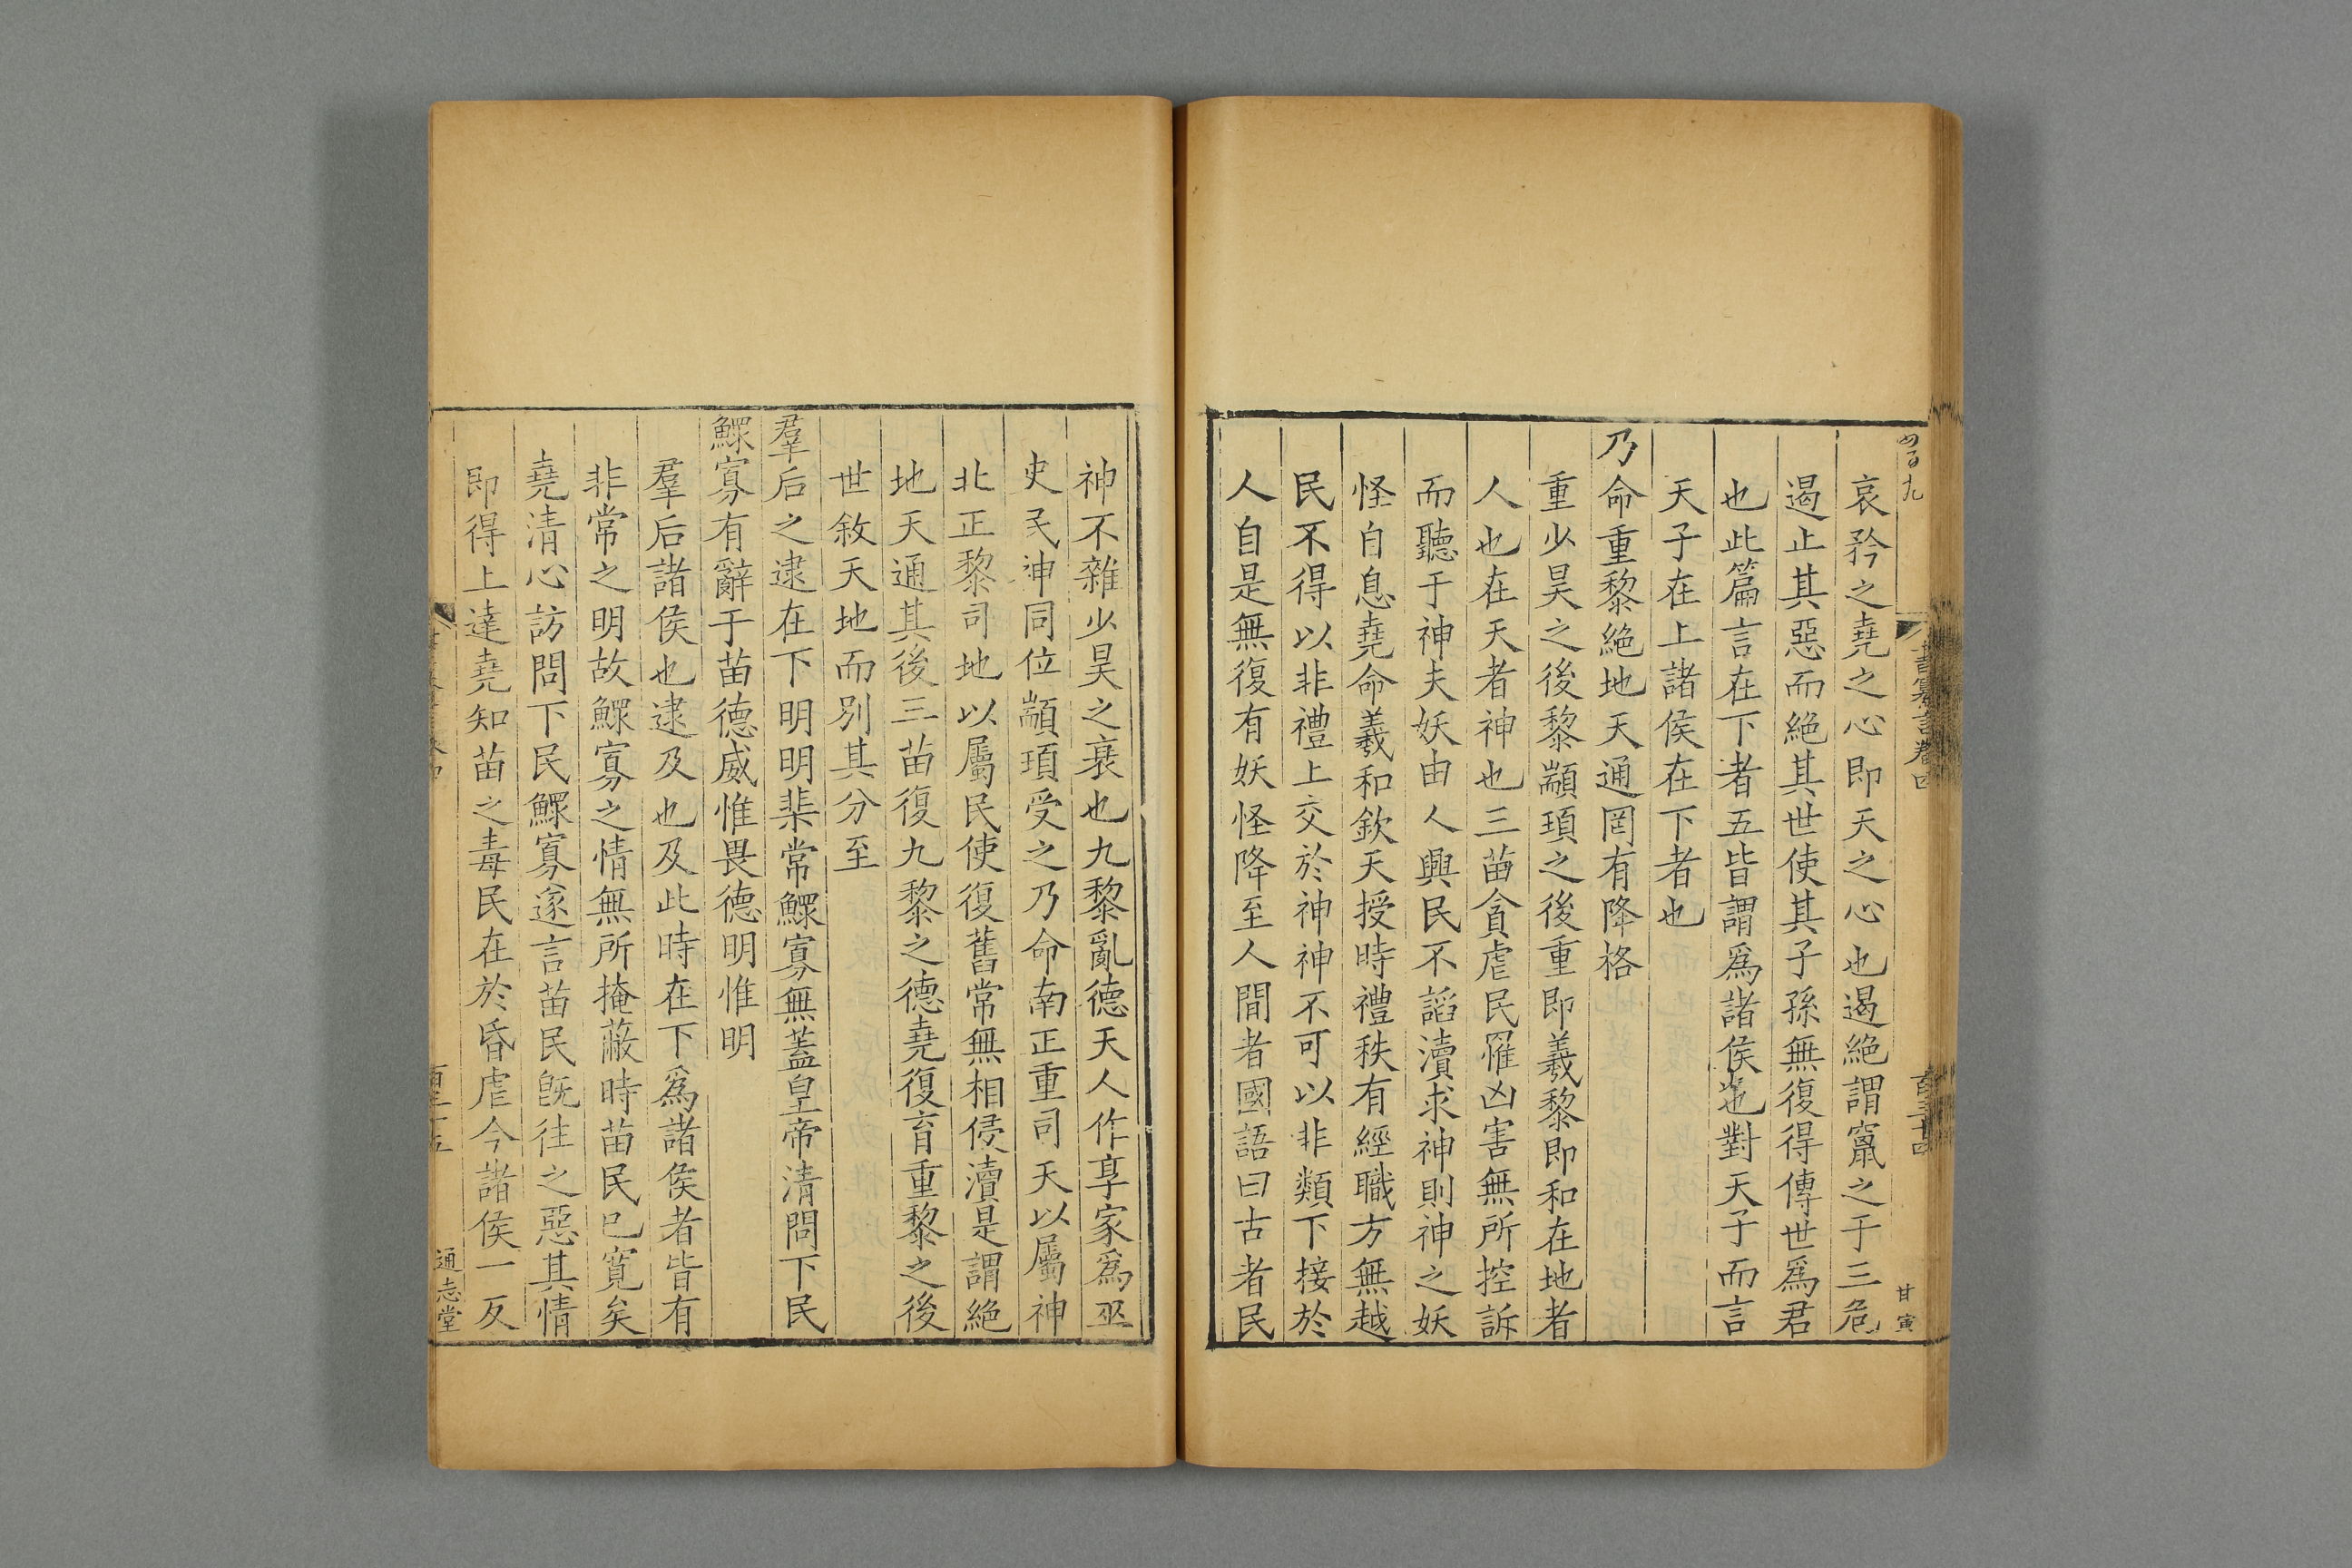 哀矜之堯之心即天之心也遏絕謂竄之于三危
遏止其惡而絕其世使其子孫無復得傳世爲君
也此篇言在下者五皆謂爲諸侯也對天子而言
天子在上諸侯在下者也
乃命重黎絕地天通罔有降格
重少昊之後黎顓頊之後重即羲黎即和在地者
人也在天者神也三苗貪虐民罹凶害無所控訴
而聽于神夫妖由人興民不謟瀆求神則神之妖
怪自息堯命羲和欽天授時禮秩有經職方無越
民不得以非禮上交於神神不可以非類下接於
人自是無復有妖怪降至人間者國語曰古者民
神不雜少昊之衰也九黎亂德天人作享家爲巫
史民神同位顓頊受之乃命南正重司天以屬神
北正黎司地以屬民使復舊常無相侵瀆是謂絕
地天通其後三苗復九黎之德堯復育重黎之後
世敘天地而別其分至
羣后之逮在下明明棐常鰥寡無蓋皇帝清問下民
鰥寡有辭于苗德威惟畏德明惟明
羣后諸侯也逮及也及此時在下爲諸侯者皆有
非常之明故鰥寡之情無所掩蔽時苗民已寬矣
堯清心訪問下民鰥寡遂言苗民旣往之惡其情
即得上達堯知苗之毒民在於昏虐今諸侯一反
通志堂